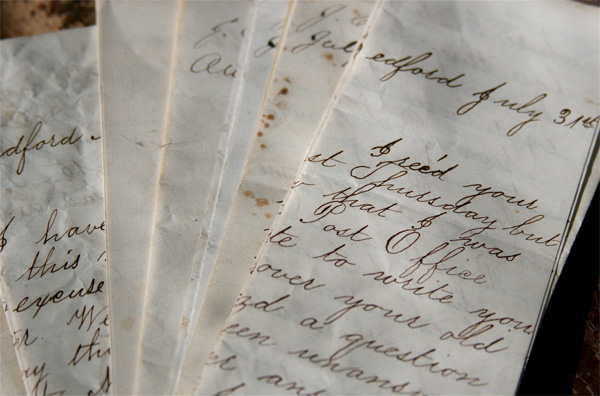 edford July 31st
I rec'd your
st Thursday but
that I was
Post Office
te to write you
over your old
d a question
een unansw
er an
July
Au
dford
I have
this
excuse
r. We
y thi